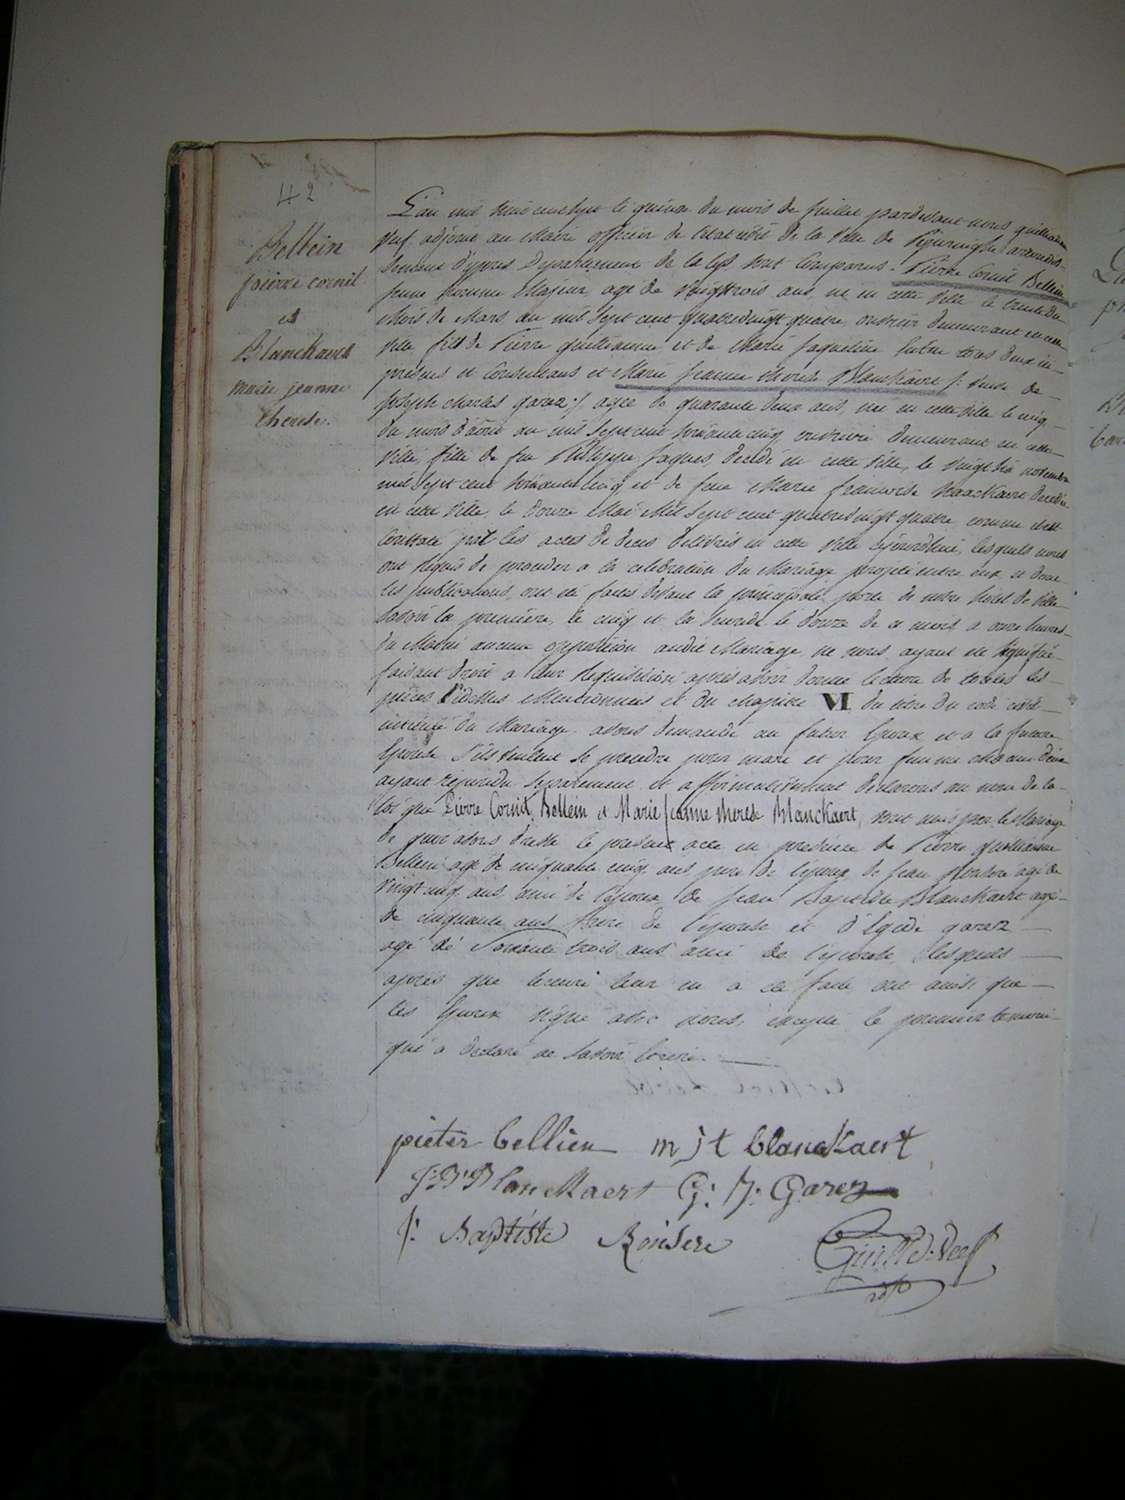 42
Bellein
pierre cornil
et
Blanckaert
marie jeanne
therese.
L'an mil huit cent sept le quinze du mois de Juillet pardevant nous guilliaume
Nef adjoint au Maire officier de l'état civil de la Ville de Poperinghe arrondis-
sement d'ypres Département de la Lys sont Comparus Pierre Cornil Bellein
jeune homme Majeur, agé de Vingt trois ans, né en cette Ville le trente du
Mois de Mars an mil Sept cent quatrevingt quatre, ouvrier demeurant en cette
ville fils de Pierre guilliaume et de Marie Jaqueline tous deux ici
présens et Consentans et Marie Jeanne therese Blanckaert /: Veuve de
Joseph charles garez :/ agée de quarante deux ans, née en cette ville le cinq
du mois d'août an mil Sept cent soixante cinq ouvriere demeurant en cette
Ville, fille de feu Philippe Jaques, décédé en cette Ville, le Vingt six novembre
mil Sept cent soixante cinq et de feue Marie françoise decedée
en cette Ville, le douze Mai Mil Sept cent quatrevingt quatre comme est
Constaté par les actes de deces délivrés en cette Ville lesquels nous
ont requis de proceder a la celebration du Mariage projeté entre eux et dont
les publications ont été faites devant la principale porte de notre hotel de Ville
Savoir la premiere, le cinq et la Seconde le douze de ce mois a onze heures
du Matin aucune opposition audit Mariage ne nous ayant été Signifiée
faisant droit a leur Requisition, après avoir donné lecture de toutes les
pièces Mentionnées et du chapitre VI du titre du code civil
intitulé du Mariage avons demandé au futur Epoux et a la future
Epouse S'ils veulent Se prendre pour mari et pour femme chacun d'eux
ayant repondu Separement et affirmativement declarons au nom de la
loi que Pierre Cornil, Bellein et Marie Jeanne therese Blanckaert, sont unis par le Mariage
de quoi avons dressé le présent acte en présence de Pierre Guilliaume
Bellein agé de cinquante cinq ans pere de l'époux de Jean agé de
Vingt cinq ans ami de l'époux, de Jean Baptiste Blanckaert agé
de cinquante ans frere de l'épouse et d'Egide garez
agé de Soixante trois ans ami de l'épouse, lesquels
après que lecture leur en a été faite ont ainsi que
les Epoux signé avec nous, excepté le premier temoin
qui a declaré ne Savoir Ecrire.
pieter bellien m j t blanckaert
J: B: Blanckaert G: J: Garez
J: Baptiste Ronsere